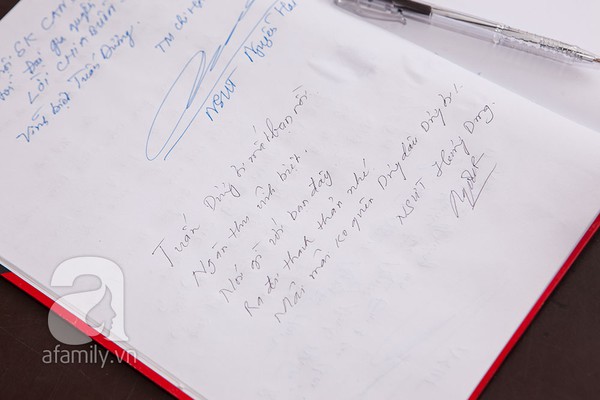 SK CAM
Đại gia quyến
LỜI CHIA BUỒN
Vĩnh biệt Tuấn Dũng.
TM chi hội
NSƯT Nguyễn Hải
Tuấn Dũng ơi mất bạn rồi
Ngàn thu vĩnh biệt.
Nói gì với bạn đây
Ra đi thanh thản nhé
Mãi mãi ko quên Dũng đâu Dũng ơi!
NSƯT Hương Dung.
a
afamily.vn